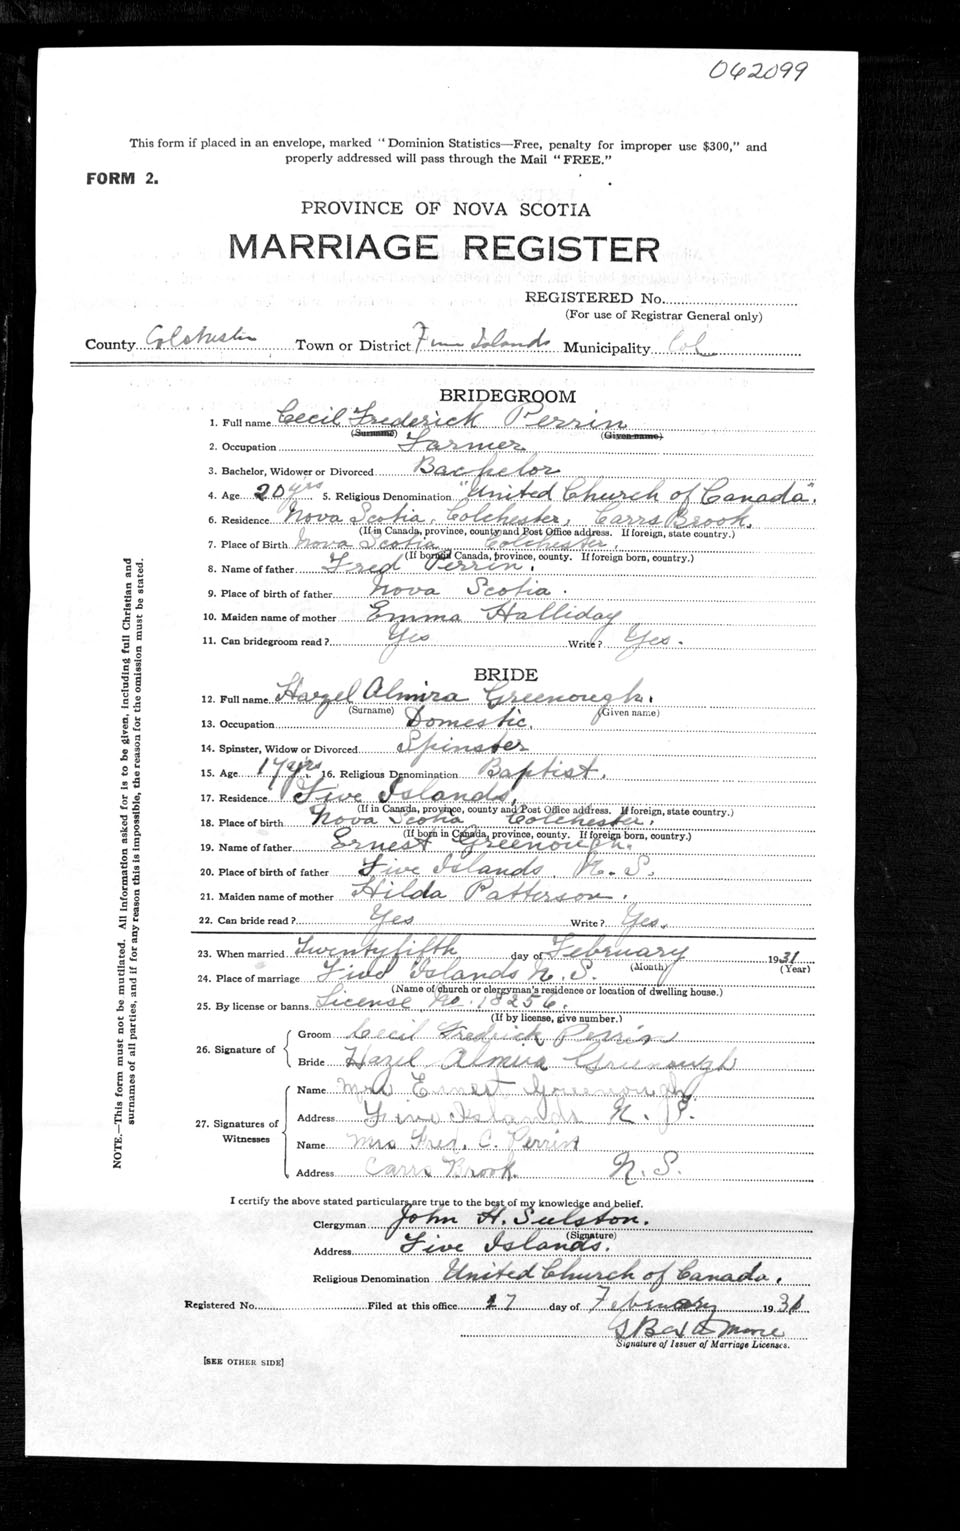 062099
This form if placed in an envelope, marked "Dominion Statistics—Free, penalty for improper use $300," and
properly addressed will pass through the Mail "FREE."
FORM 2.
PROVINCE OF NOVA SCOTIA
MARRIAGE REGISTER
REGISTERED No.
(For use of Registrar General only)
County Colchester Town or District Five Islands Municipality Col
BRIDEGROOM
1. Full name Cecil Frederick Perrin
(Surname) (Given name)
2. Occupation Farmer
3. Bachelor, Widower or Divorced Bachelor
4. Age 20 yrs 5. Religious Denomination "United Church of Canada".
6. Residence Nova Scotia, Colchester, Carrs Brook.
(If in Canada, province, county and Post Office address. If foreign, state country.)
7. Place of Birth Nova Scotia Colchester.
(If born in Canada, province, county. If foreign born, country.)
8. Name of father Fred Perrin.
9. Place of birth of father Nova Scotia.
10. Maiden name of mother Emma Halliday
11. Can bridegroom read? Yes Write? Yes.
BRIDE
12. Full name Hazel Almira Greenough.
(Surname) (Given name)
13. Occupation Domestic.
14. Spinster, Widow or Divorced Spinster
15. Age 17 yrs. 16. Religious Denomination Baptist.
17. Residence Five Islands,
(If in Canada, province, county and Post Office address. If foreign, state country.)
18. Place of birth Nova Scotia Colchester.
(If born in Canada, province, county. If foreign born, country.)
19. Name of father Ernest Greenough.
20. Place of birth of father Five Islands N. S.
21. Maiden name of mother Hilda Patterson.
22. Can bride read? Yes Write? Yes.
23. When married Twentyfifth day of February 1931
(Month) (Year)
24. Place of marriage Five Islands N. S.
(Name of church or clergyman's residence or location of dwelling house.)
25. By license or banns License No. 18256.
(If by license, give number.)
26. Signature of
Groom Cecil Fredrick Perrin
Bride Hazel Almira Greenough
27. Signatures of Witnesses
Name Mrs Ernest Greenough
Address Five Islands N. S.
Name Mrs Fred. C. Perrin
Address Carrs Brook. N. S.
I certify the above stated particulars are true to the best of my knowledge and belief.
Clergyman John H. Sulston.
(Signature)
Address Five Islands.
Religious Denomination United Church of Canada.
Registered No. Filed at this office 27 day of February 1931
Signature of Issuer of Marriage Licenses.
[SEE OTHER SIDE]
NOTE.—This form must not be mutilated. All information asked for is to be given, including full Christian and
surnames of all parties, and if for any reason this is impossible, the reason for the omission must be stated.